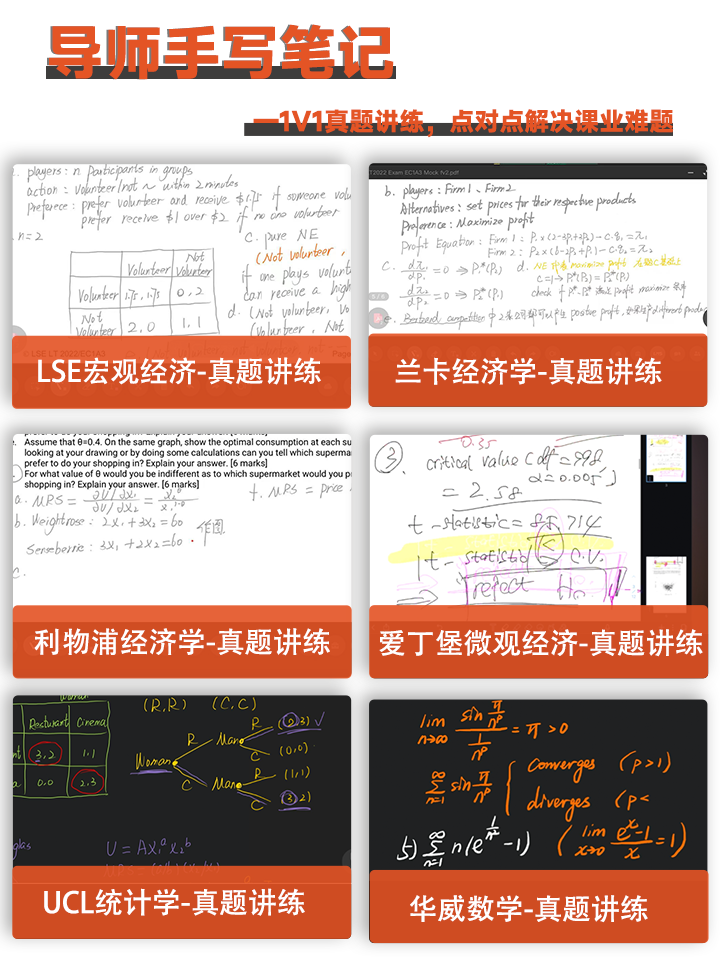 导师手写笔记
—1V1真题讲练，点对点解决课业难题
players: n participants in groups
action: volunteer/not ~ within 2 minutes
Preference: prefer volunteer and receive $1.75 if someone volu
prefer receive $1 over $2 if no one volunteer
n=2
c. pure NE
(Not volunteer,
if one plays volunt
can receive a high
d. (Not volunteer, vo
(volunteer, Not
Volunteer Not Volunteer
Volunteer 1.75, 1.75 0, 2
Not Volunteer 2, 0 1, 1
© LSE LT 2022/EC1A3
Page
LSE宏观经济-真题讲练
T2022 Exam EC1A3 Mock fv2.pdf
b. players: Firm 1、Firm 2
Alternatives: set prices for their respective products
Preference: Maximize profit
Profit Equation: Firm 1: P₁×(2-3P₁+2P₂)-C·q₁=π₁
Firm 2: P₂×(6-2P₂+P₁)-C·q₂=π₂
C. dπ₁/dP₁ = 0 ⇒ P₁*(P₂) d. NE maximize profit
C=1 → P₁*(P₂) = P₂*(P₁)
dπ₂/dP₂ = 0 ⇒ P₂*(P₁) check if P₁*, P₂* profit maximize
5 / 6
e. Bertrand competition positive profit, different produ
兰卡经济学-真题讲练
e. Assume that θ=0.4. On the same graph, show the optimal consumption at each su
looking at your drawing or by doing some calculations can you tell which superma
prefer to do your shopping in? Explain your answer. [6 marks]
For what value of θ would you be indifferent as to which supermarket would you pr
shopping in? Explain your answer. [6 marks]
a. MRS = ∂U/∂X₁ / ∂U/∂X₂ = f. MRS = price
b. Weightrose: 2X₁+3X₂=60 作图
Senseberrie: 3X₁+2X₂=60
C.
利物浦经济学-真题讲练
0.35
③. critical value (df=998
α=0.005)
= 2.58
t-statistic = 85.714
|t-statistic > C.V.
⇒ reject H₀
爱丁堡微观经济-真题讲练
Woman
Resturant Cinema
3,2 1,1
0,0 2,3
(R,R) (C,C)
R (2,3) ✓
R Man
C (0,0)
Woman
R (1,1)
C Man
C (3,2)
glas
U = AX₁ᵃX₂ᵇ
UCL统计学-真题讲练
lim n→∞ sin π/nᵖ / 1/nᵖ = π > 0
∞ Σ n=1 sin π/nᵖ { converges (p>1)
diverges (p<
5) ∞ Σ n=1 n(e^(1/nᵖ)-1) (lim x→0 eˣ-1/x = 1)
华威数学-真题讲练